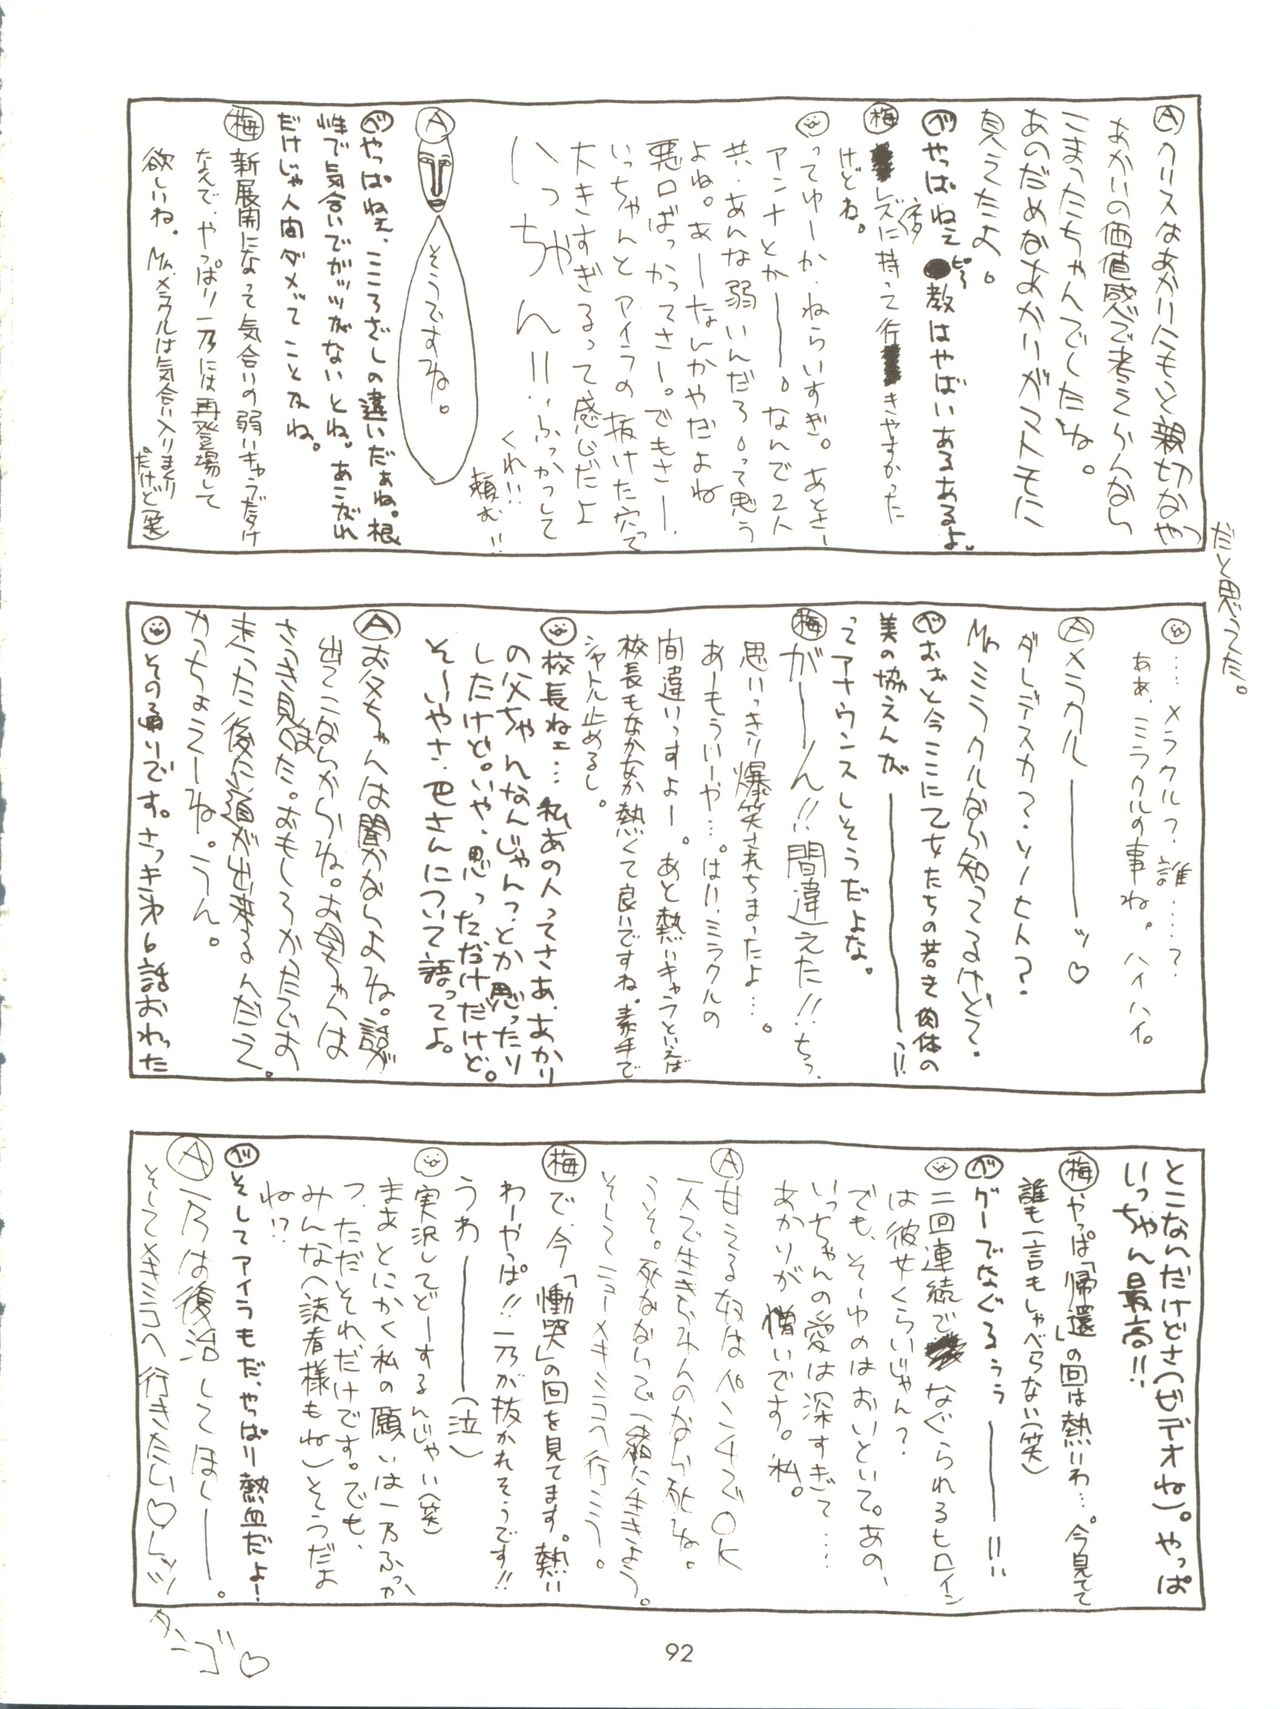 Ⓐクリスはあかりにもっと親切なやつ
だと思ってた。
あかいの価値感で考えらんなら
こまったちゃんでしたね。
あのだめなあかりがマトモに
見えたよ。
㋬やっぱねぇ ピラ 教はやばいあるあるよ。
㊢レズに持って行きやすかった
けどね。
ってゆーか、ねらいすぎ。あとさー
アンナとかー。なんで2人
共、あんな弱いんだろって思う
よね。あーなんかやだよね
悪口ばっかってさー。でもさー、
いっちゃんとアイラの抜けた穴って
大きすぎるって感じだよ
いっちゃん!!ふっかつして
くれ!!
頼む!!
Ⓐ
そうですね。
㋬やっぱねェ、こころざしの違いだぁね。根
性で気合いでガッツがないとね。あこがれ
だけじゃ人間ダメってことよね。
梅 新展開になって気合いの弱いキャラだけ
なんで、やっぱり一乃には再登場して
欲しいね。Mr.メラクルは気合い入りまくり
だけど(笑)
……メラクル?誰……?
ああ、ミラクルの事ね。ハイハイ。
Ⓐメラカルーーッ♡
ダレデスカ?ソノヒト?
Mr.ミラクルなら知ってるけどて。
㋬おぉと今ここに乙女たちの若き肉体の
美の協えんがーーっ!!
ってアナウンスしそうだよな。
梅 がーーん!!間違えた!!ちっ、
思いっきり爆笑されちまったよ…。
あーもういーや…。はい、ミラクルの
間違いっすよー。あと熱いキャラといえば
校長もなかなか熱くて良いですね。素手で
シャトル止めるし。
校長ねェ… 私あの人ってさあ、あかり
の父ちゃんなんじゃんっ?とか思ったり
したけど。いや、思っただけだけど。
そーいやさ、巴さんについて語ってよ。
Ⓐお父ちゃんは聞かなしよね。話が
出てこないからね。お母ちゃんは
さっき見た。おもしろかったでお
走った後に道が出来るんだって。
かっちょえーね。うん。
その通りです。さっき第6話おわった
とこなんだけどさ(ビデオね)。やっぱ
いっちゃん最高!!
梅 やっぱ「帰還」の回は熱いわ…。今見てて
誰も一言もしゃべらない(笑)
㋬グーでなぐるぅぅーー!!
二回連続でなぐられるヒロイン
は彼女くらいじゃん?
でも、そーゆのはおいといて。あの、
いっちゃんの愛は深すぎて……
あかりが憎いです。私。
Ⓐ甘える奴はパンチでOK
一人で生きられんのなら死ね。
うそ。死なないで一緒に生きよう。
そしてニューメキシコへ行こう。
梅 で、今「慟哭」の回を見てます。熱い
わーやっぱ!!一乃が抜かれそうです!!
うわーー(泣)
実況してどーするんじゃい(笑)
まあとにかく私の願いは一乃ふっかつ、
ただそれだけです。でも、
みんな(読者様もね)そうだよ
ね!?
㋬そしてアイラもだ、やっぱり熱血だよ!
Ⓐ一乃は復活してほしーー。
そしてメキシコへ行きたい♡レッツ
タンゴ♡
92